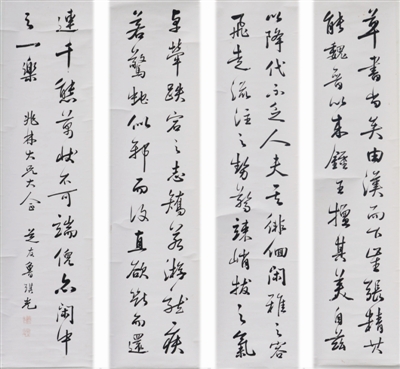 草書尚矣由漢而下崔張精其
能魏晉以來鍾王擅其美自茲
以降代不乏人夫其徘徊閑雅之容
飛走流注之勢驚竦峭拔之氣
卓犖跌宕之志矯若游龍疾
若驚虵似邪而復直欲斷而還
連千態萬狀不可端倪亦閑中
之一樂 兆林大兄大人正 芝友魯琪光